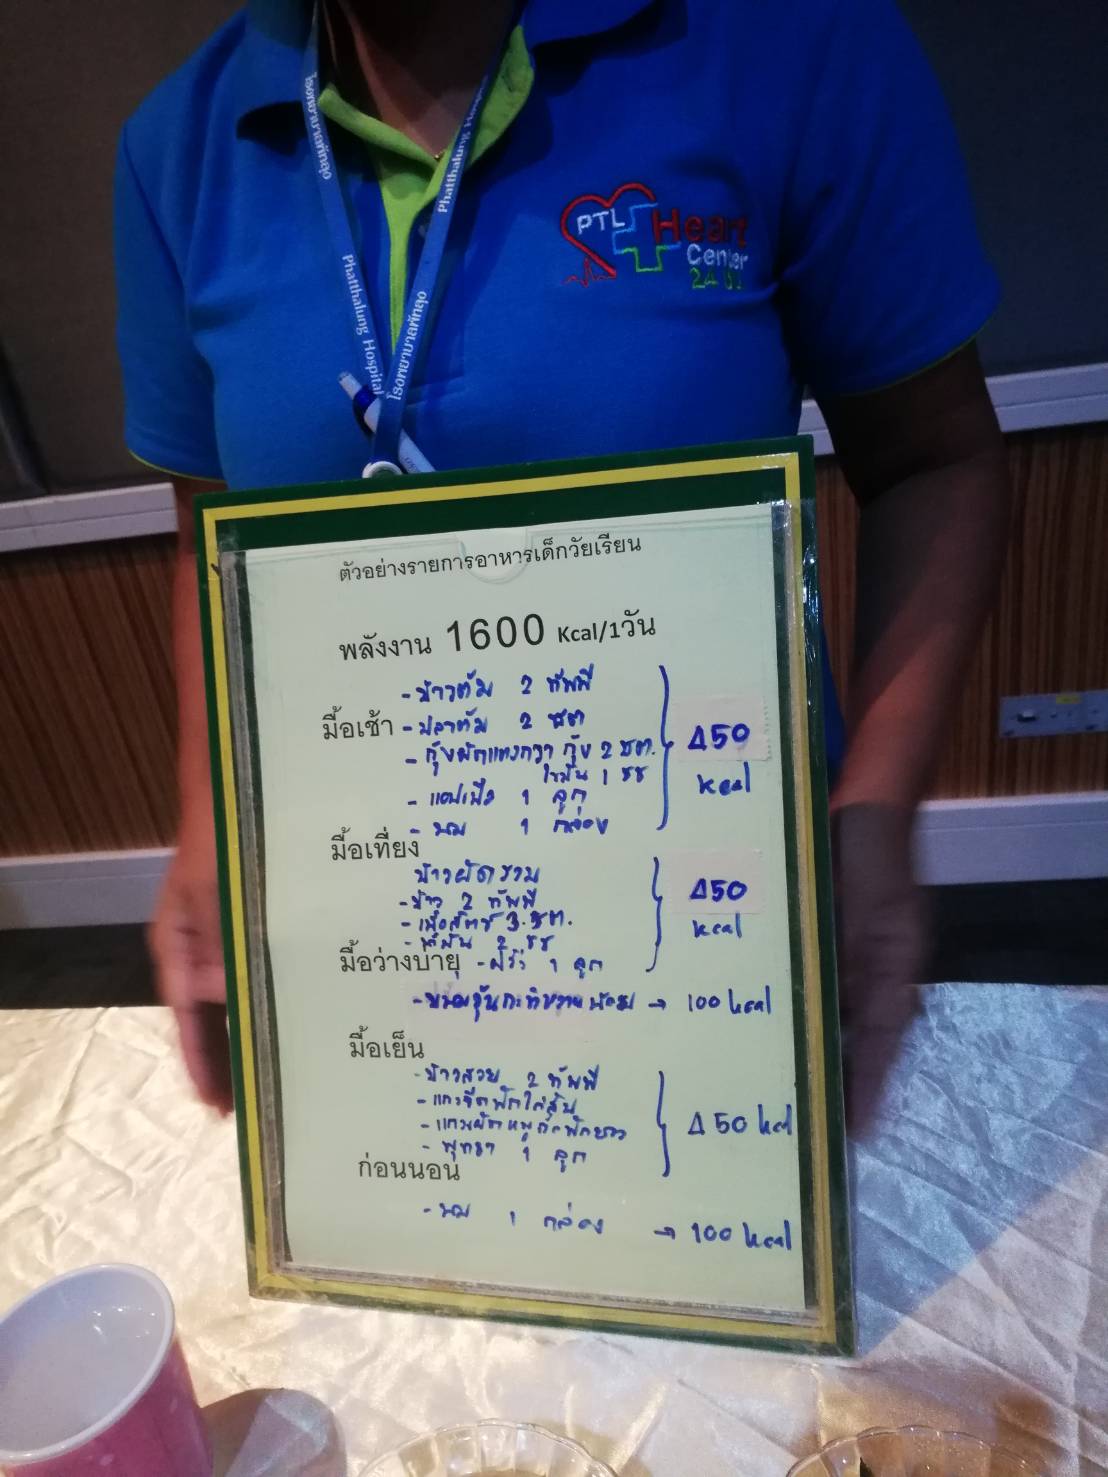 โรงพยาบาลพัทลุง
Phatthalung Hospital
Phatthalung Hospital
โรงพยาบาลพัทลุง
PTL Heart
Center
24
ตัวอย่างรายการอาหารเด็กวัยเรียน
พลังงาน 1600 Kcal/1วัน
มื้อเช้า
- ข้าวต้ม 2 ทัพพี
- ปลาต้ม 2 ชต
- กุ้งผัดแตงกวา กุ้ง 2 ชต.
น้ำมัน 1 ชช
- แอปเปิ้ล 1 ลูก
- นม 1 กล่อง
450
kcal
มื้อเที่ยง
ข้าวผัดรวม
- ข้าว 2 ทัพพี
- เนื้อสัตว์ 3 ชต.
- น้ำมัน 2 ชช
- ฝรั่ง 1 ลูก
450
kcal
มื้อว่างบ่าย
- ขนมวุ้นกะทิหวานน้อย → 100 kcal
มื้อเย็น
- ข้าวสวย 2 ทัพพี
- แกงจืดฟักใส่
- พุทรา 1 ลูก
450 kcal
ก่อนนอน
- นม 1 กล่อง → 100 kcal